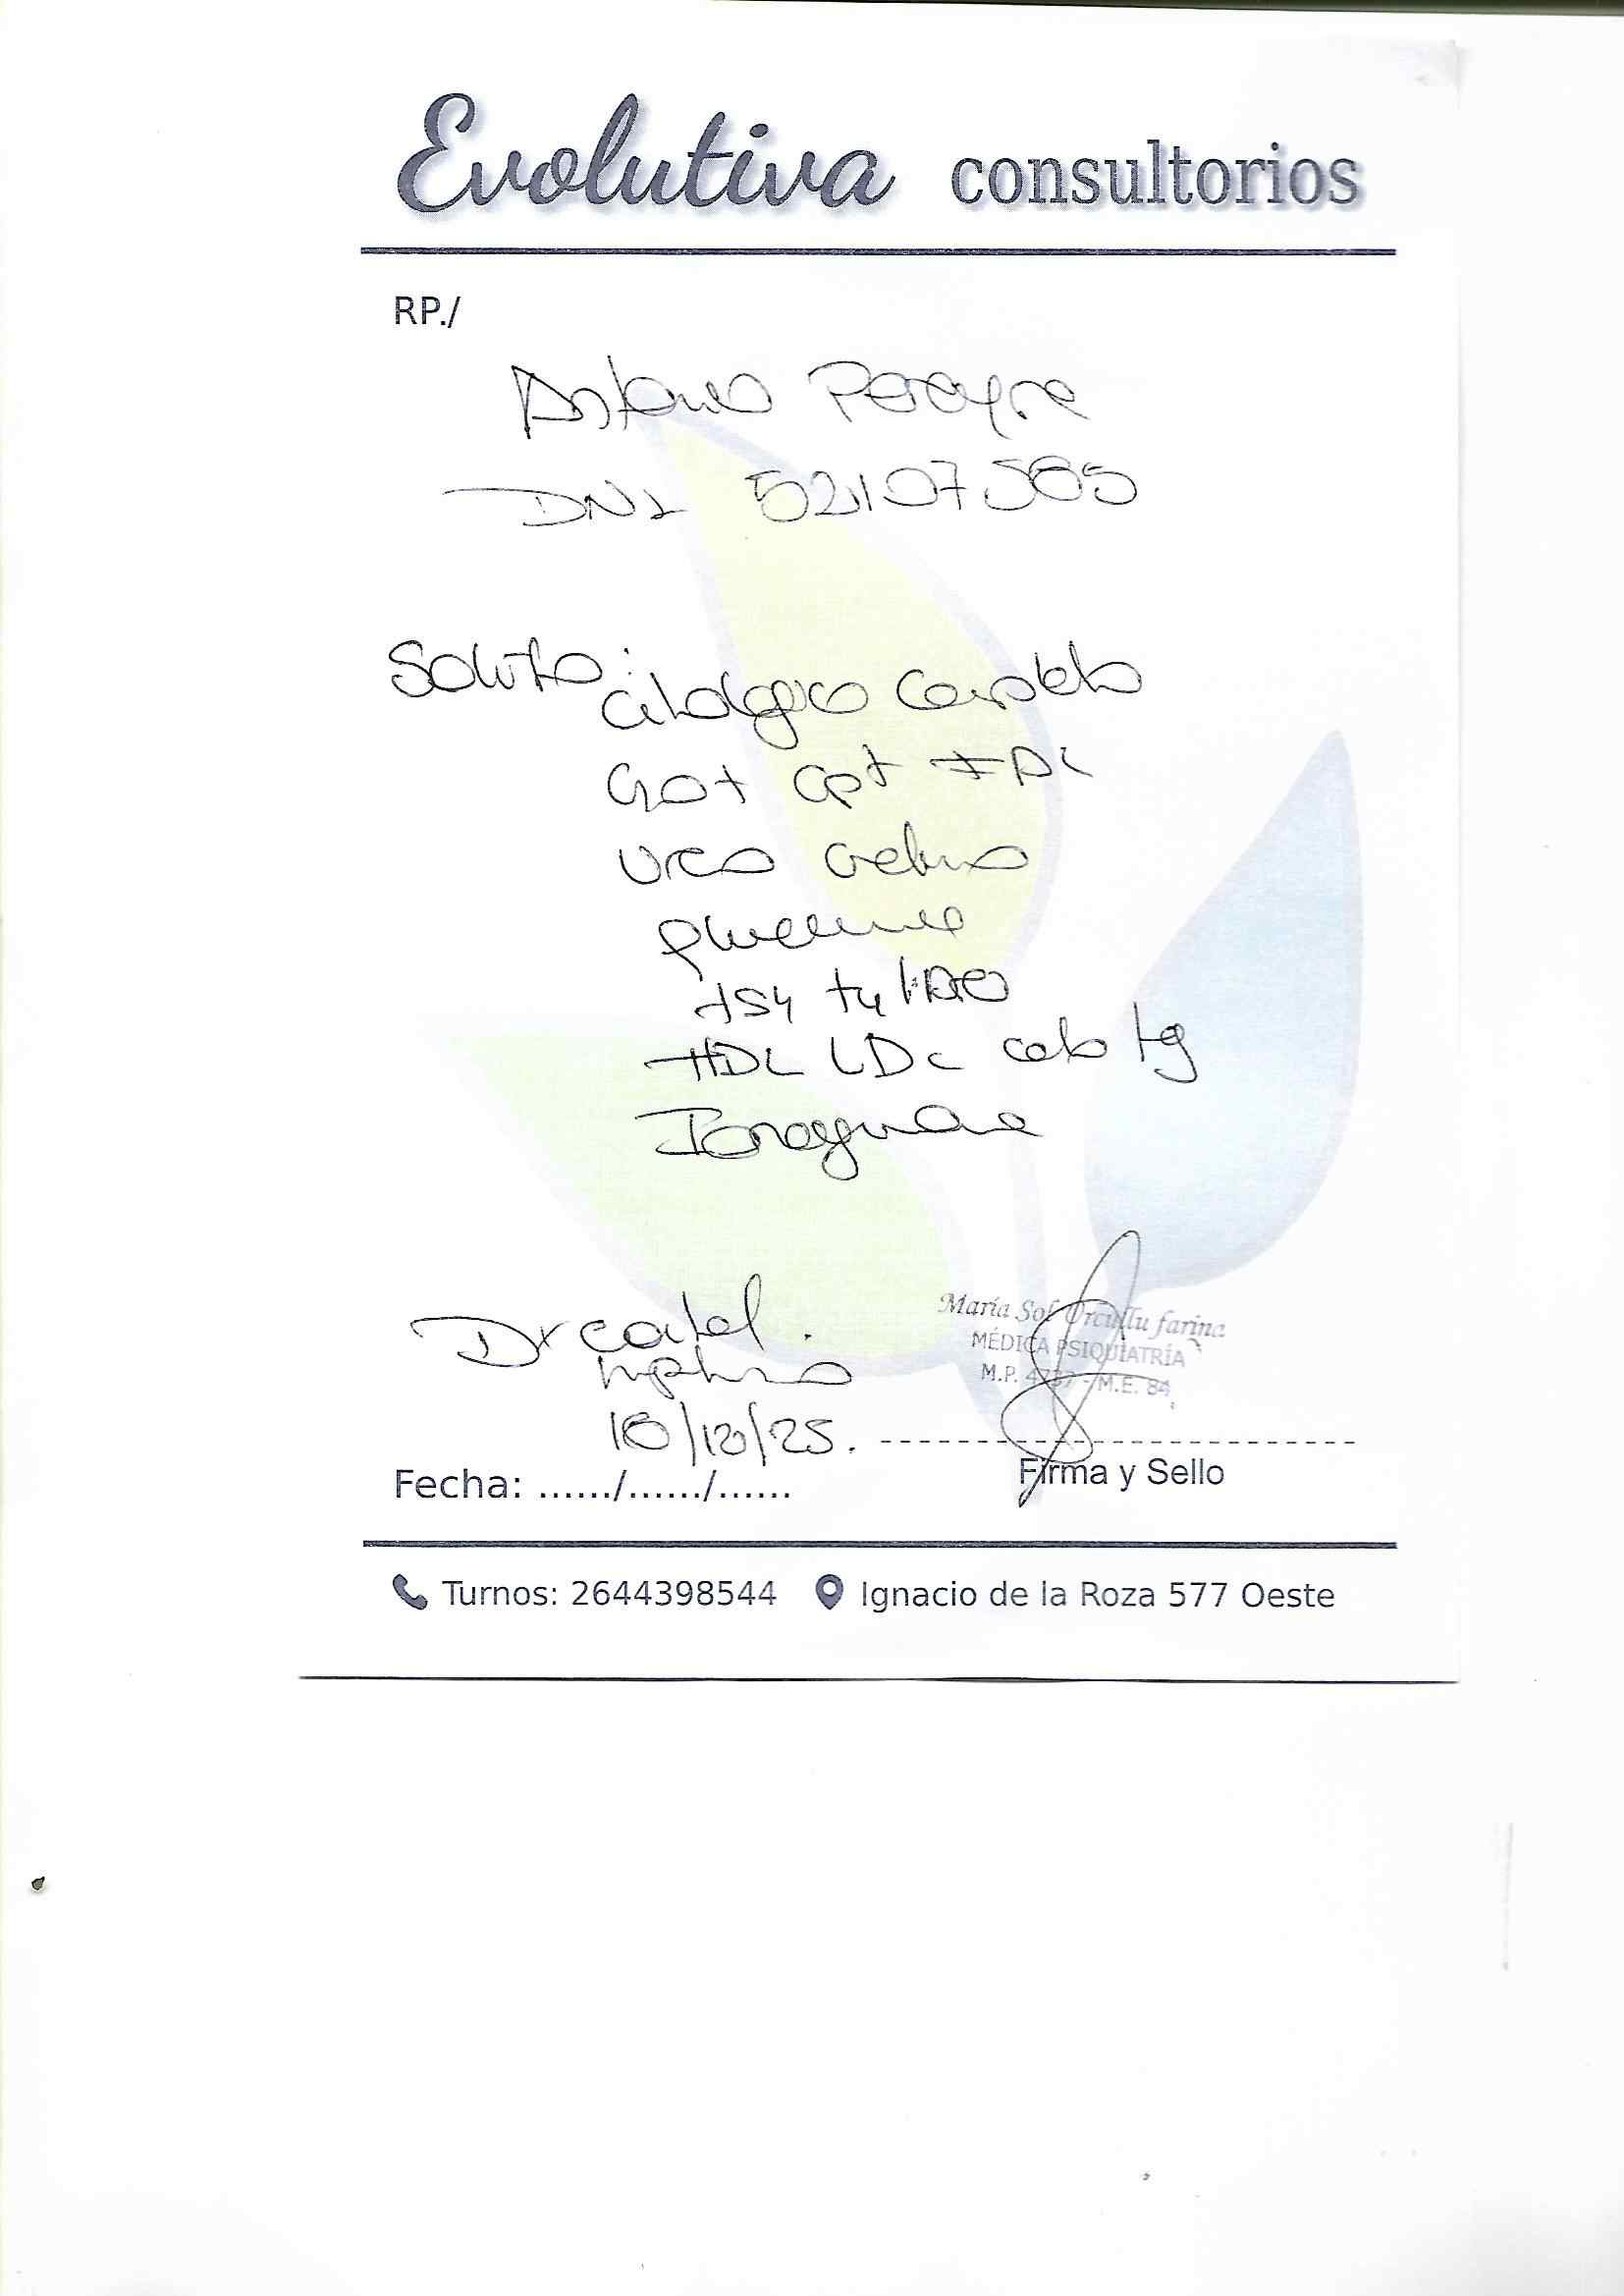 Evolutiva consultorios
RP./
Antonio Pereyra
DNI 52107585
Solicito:
citologico completo
Got Gpt FAL
Urea creatinina
glucemia
tsh t4 libre
HDL LDL col tg
Ionograma
Dx control
10/12/25.
María Sol Orcullu farina
MÉDICA PSIQUIATRÍA
M.P. 4737 - M.E. 84
Firma y Sello
Fecha: ....../....../......
Turnos: 2644398544 Ignacio de la Roza 577 Oeste